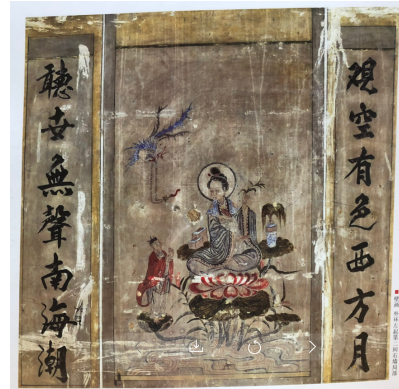 觀空有色西方月
聽世無聲南海潮